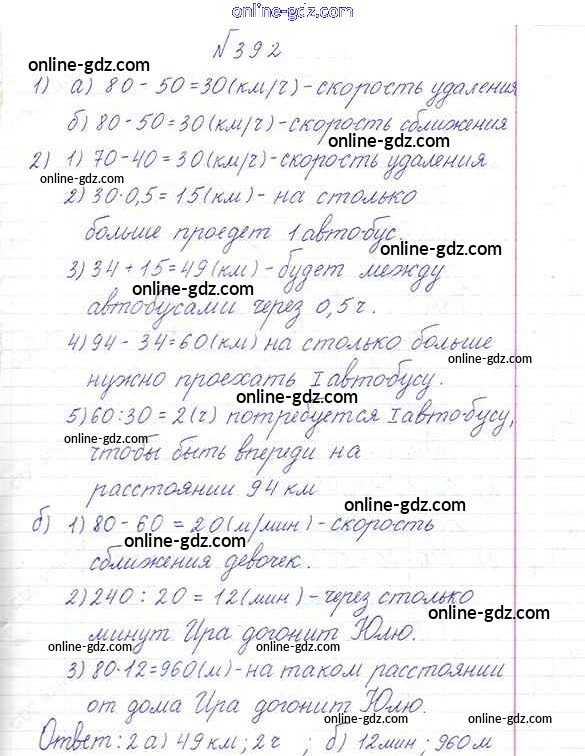 online-gdz.com
№392
online-gdz.com
1) а) 80 - 50 = 30 (км/ч) - скорость удаления
online-gdz.com
б) 80 - 50 = 30 (км/ч) - скорость сближения
online-gdz.com
2) 1) 70 - 40 = 30 (км/ч) - скорость удаления
online-gdz.com
2) 30·0,5 = 15 (км) - на столько
online-gdz.com
больше проедет 1 автобус.
online-gdz.com
3) 34 + 15 = 49 (км) - будет между
online-gdz.com
автобусами через 0,5 ч.
online-gdz.com
4) 94 - 34 = 60 (км) на столько больше
online-gdz.com
нужно проехать I автобусу.
5) 60 : 30 = 2 (ч) потребуется I автобусу,
online-gdz.com
чтобы быть впереди на
online-gdz.com
расстоянии 94 км
online-gdz.com
б) 1) 80 - 60 = 20 (м/мин) - скорость
online-gdz.com
сближения девочек.
online-gdz.com
2) 240 : 20 = 12 (мин) - через столько
online-gdz.com
минут Ира догонит Юлю.
online-gdz.com
online-gdz.com
3) 80·12 = 960 (м) - на таком расстоянии
online-gdz.com
от дома Ира догонит Юлю.
online-gdz.com
Ответ: 2 а) 49 км; 2 ч ; б) 12 мин ; 960 м
online-gdz.com